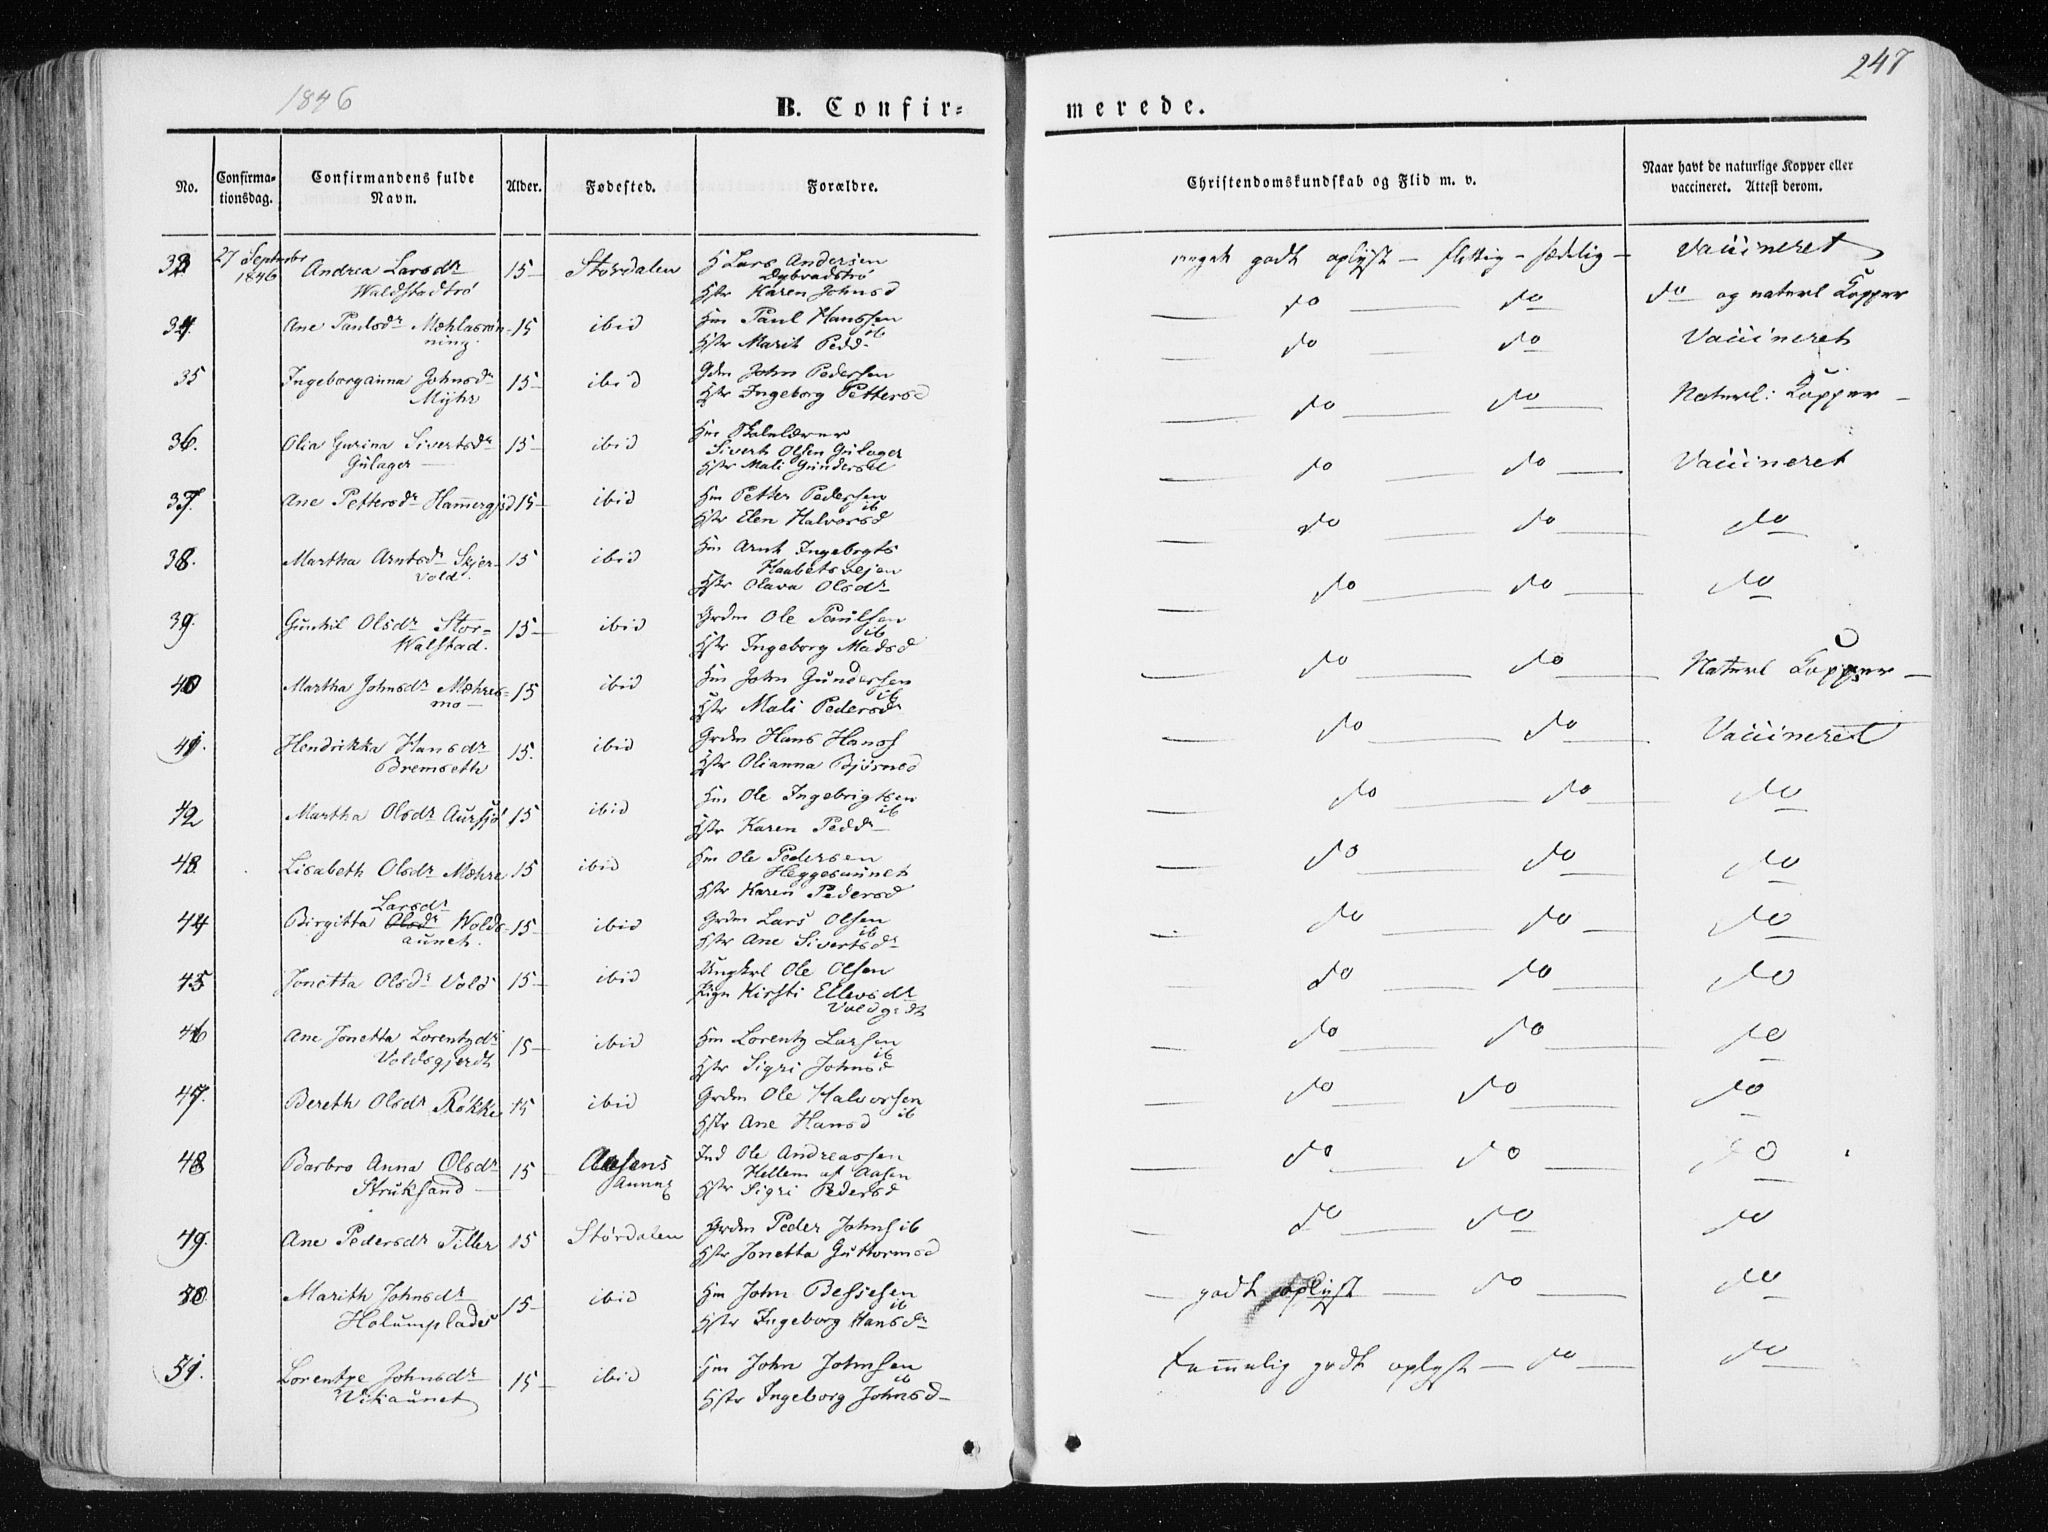 247
1846
B. Confir=
merede.
No.
Confirma-
tionsdag.
Confirmandens fulde
Navn.
Alder.
Fødested.
Forældre.
Christendomskundskab og Flid m. v.
Naar havt de naturlige Kopper eller
vaccineret. Attest derom.
33 27 September 1846 Andrea Larsdr Waldstadtrø 15 Størdalen
H Lars Andersen
Dybvadstrø
Hstr Karen Johnsd
meget godt oplyst — flittig - sædelig — Vaccineret
34. Ane Paulsdr Mæhlasøn-
ning. 15 ibid
Hm Paul Hanssen
ib
Hstr Marit Pedd.
do do do og naturl Kopper
35 Ingeborganna Johnsdr
Myhr 15 ibid
Gdm John Pedersen
Hstr Ingeborg Pettersd
do do Vaccineret
36. Olia Gurina Sivertsdr
Gulager 15 ibid
Hm Skolelærer
Sivert Olsen Gulager
Hstr Mali Gundersd
do do Naturl: Kopper
37. Ane Pettersdr Hammer 15 ibid
Hm Petter Pedersen
ib
Hstr Elen Halvorsd
do do Vaccineret
38. Martha Arntsdr Skjer-
vold. 15 ibid
Hm Arnt Ingebrgts
Haabetsvejen
Hstr Olava Olsdr
do do do
39. Gunhil Olsdr Stor-
Walstad. 15 ibid
Grdm Ole Paulsen
ib
Hstr Ingeborg Madsd
do do do
40 Martha Johnsdr Mæhres-
mo 15 ibid
Hm John Gundersen
ib
Hstr Mali Pedersdr
do do Naturl Kopper
41. Hendrikka Hansdr
Bremseth 15. ibid
Grdm Hans Hanss
Hstr Olianna Bjørnsd
do do Vaccineret
42 Martha Olsdr Aursjø 15 ibid
Hm Ole Ingebrigtsen
ib
Hstr Karen Peddr
do do do
43. Lisabeth Olsdr Mæhre 15 ibid
Hm Ole Pedersen
Heggesaunet
Hstr Karen Pedersd
do do do
44 Larsdr
Birgitta Olsdr Wolds-
aunet. 15 ibid
Grdm Lars Olsen
ib
Hstr Ane Sivertsdr
do do do
45 Jonetta Olsdr Vold 15 ibid
Ungkrl Ole Olsen
Pign Kirsti Ellevsdr
do do do
46 Ane Jonetta Lorentzdr
Voldsgjerdt 15 ibid
Hm Lorentz Larsen
ib
Hstr Sigri Johnsd
do do do
47. Bereth Olsdr Røkke 15 ibid
Grdm Ole Halvorsen
ib
Hstr Ane Hansd
do do do
48 Barbro Anna Olsdr
Struksand 15 Aasens
Annex
Ind Ole Andreassen
Hellem af Aasen
Hstr Sigri Pedersd
do do do
49. Ane Pedersdr Tiller 15 Størdalen
Grdm Peder Johns ib
Hstr Jonetta Guttormsd
do do do
50 Marith Johnsdr
Holumplads 15 ibid
Hm John Bessesen
ib
Hstr Ingeborg Hansdr
godt oplyst do do
51. Lorentze Johnsdr
Vikaunet 15 ibid
Hm John Johnsen
ib
Hstr Ingeborg Johnsd
temmelig godt oplyst — do do